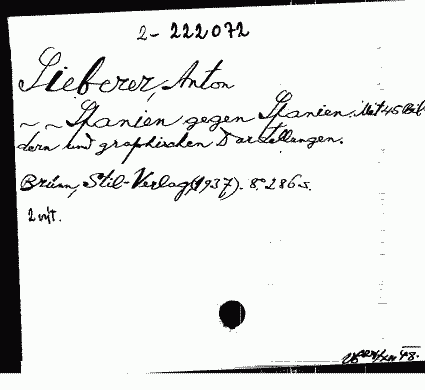 2-222072
Sieberer, Anton
~ ~ Spanien gegen Spanien. Mit 45 Bil-
dern und graphischen Darstellungen.
Brünn, Stil-Verlag (1937). 8° 286 S.
48.